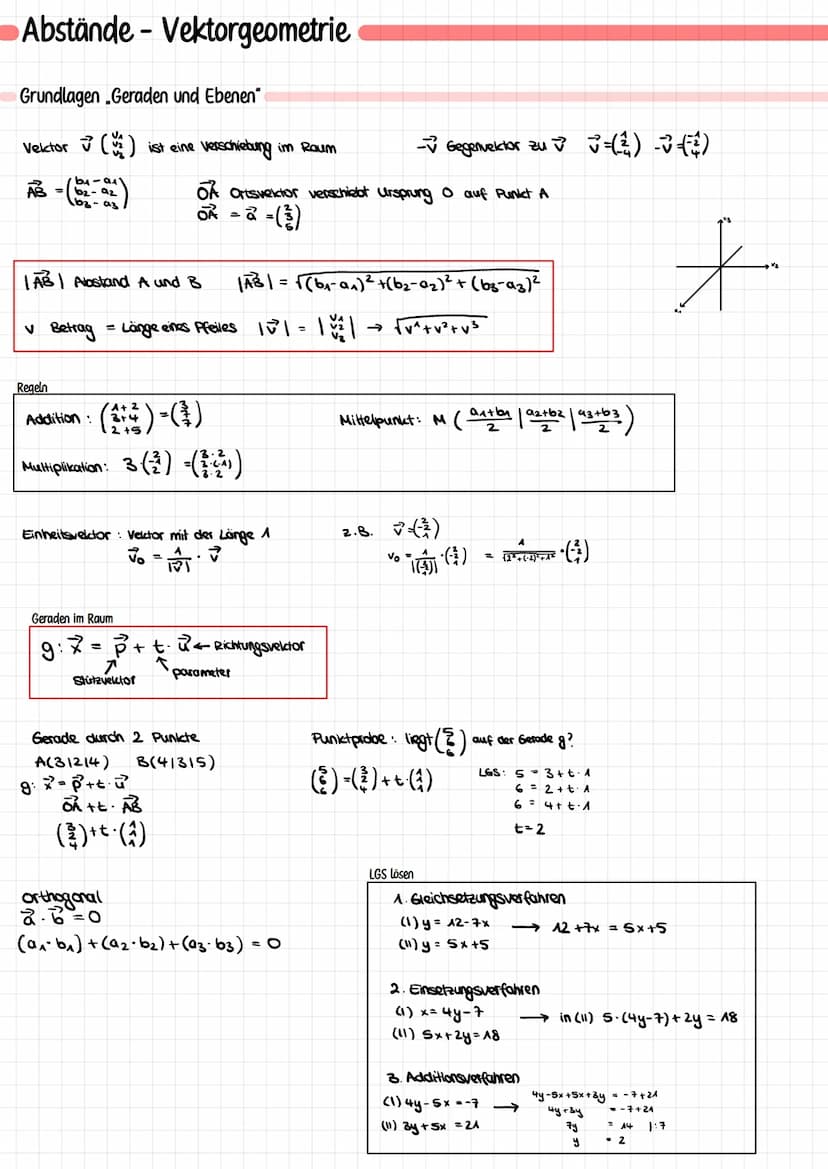 Abstände - Vektorgeometrie
Grundlagen „Geraden und Ebenen"
Vektor v⃗ (v1 v2 v3) ist eine Verschiebung im Raum
-v⃗ Gegenvektor zu v⃗
AB⃗ = (b1-a1 b2-a2 b3-a3)
OA⃗ Ortsvektor verschiebt Ursprung O auf Punkt A
OA⃗ = a⃗ = (2 3 5)
|AB⃗| Abstand A und B |AB⃗| = √(b1-a1)²+(b2-a2)²+(b3-a3)²
v Betrag = Länge eines Pfeiles |v⃗| = |v1 v2 v3| → √v¹+v²+v³
Regeln
Addition: (1+2 3+4 2+5) = (3 7 7)
Mittelpunkt: M (a1+b1/2 | a2+b2/2 | a3+b3/2)
Multiplikation: 3·(2 -1 2) = (3·2 3·(-1) 3·2)
Einheitsvektor: Vektor mit der Länge 1
v⃗0 = 1/|v⃗| · v⃗
z.B. v⃗ = (2 -2 1)
= 1/√2²+(-2)²+1² · (2 -2 1)
Geraden im Raum
g: x⃗ = p⃗ + t · u⃗ ← Richtungsvektor
Stützvektor
parameter
Gerade durch 2 Punkte
A(3|2|4) B(4|3|5)
g: x⃗ = p⃗ + t · u⃗
OA⃗ + t · AB⃗
(3 2 4) + t · (1 1 1)
Punktprobe: liegt (5 6 6) auf der Gerade g?
(5 6 6) = (3 2 4) + t · (1 1 1)
LGS: 5 = 3 + t · 1
6 = 2 + t · 1
6 = 4 + t · 1
t = 2
orthogonal
a⃗ · b⃗ = 0
(a1·b1)+(a2·b2)+(a3·b3) = 0
LGS lösen
1. Gleichsetzungsverfahren
(I) y = 12-7x → 12+7x = 5x+5
(II) y = 5x+5
2. Einsetzungsverfahren
(I) x = 4y-7 → in (II) 5·(4y-7)+2y = 18
(II) 5x+2y = 18
3. Additionsverfahren
(I) 4y-5x = -7 →
(II) 3y+5x = 21
4y-5x+5x+3y = -7+21
4y+3y = -7+21
7y = 14 |:7
y = 2